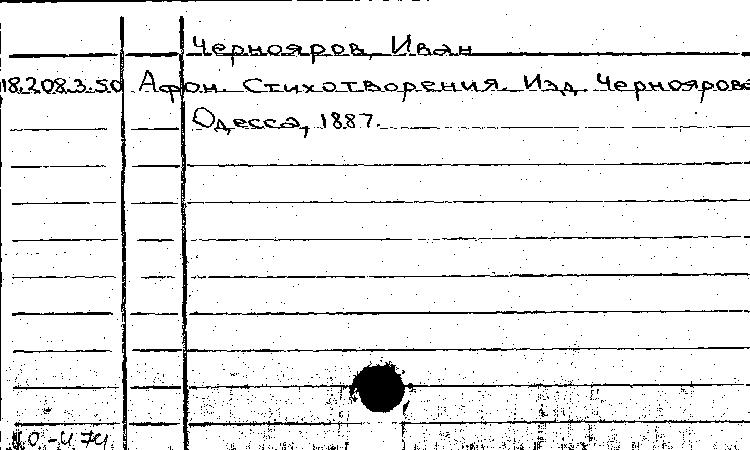 Чернояров, Иван
18.208.3.50 Афон. Стихотворения. Изд. Черноярова
Одесса, 1887.